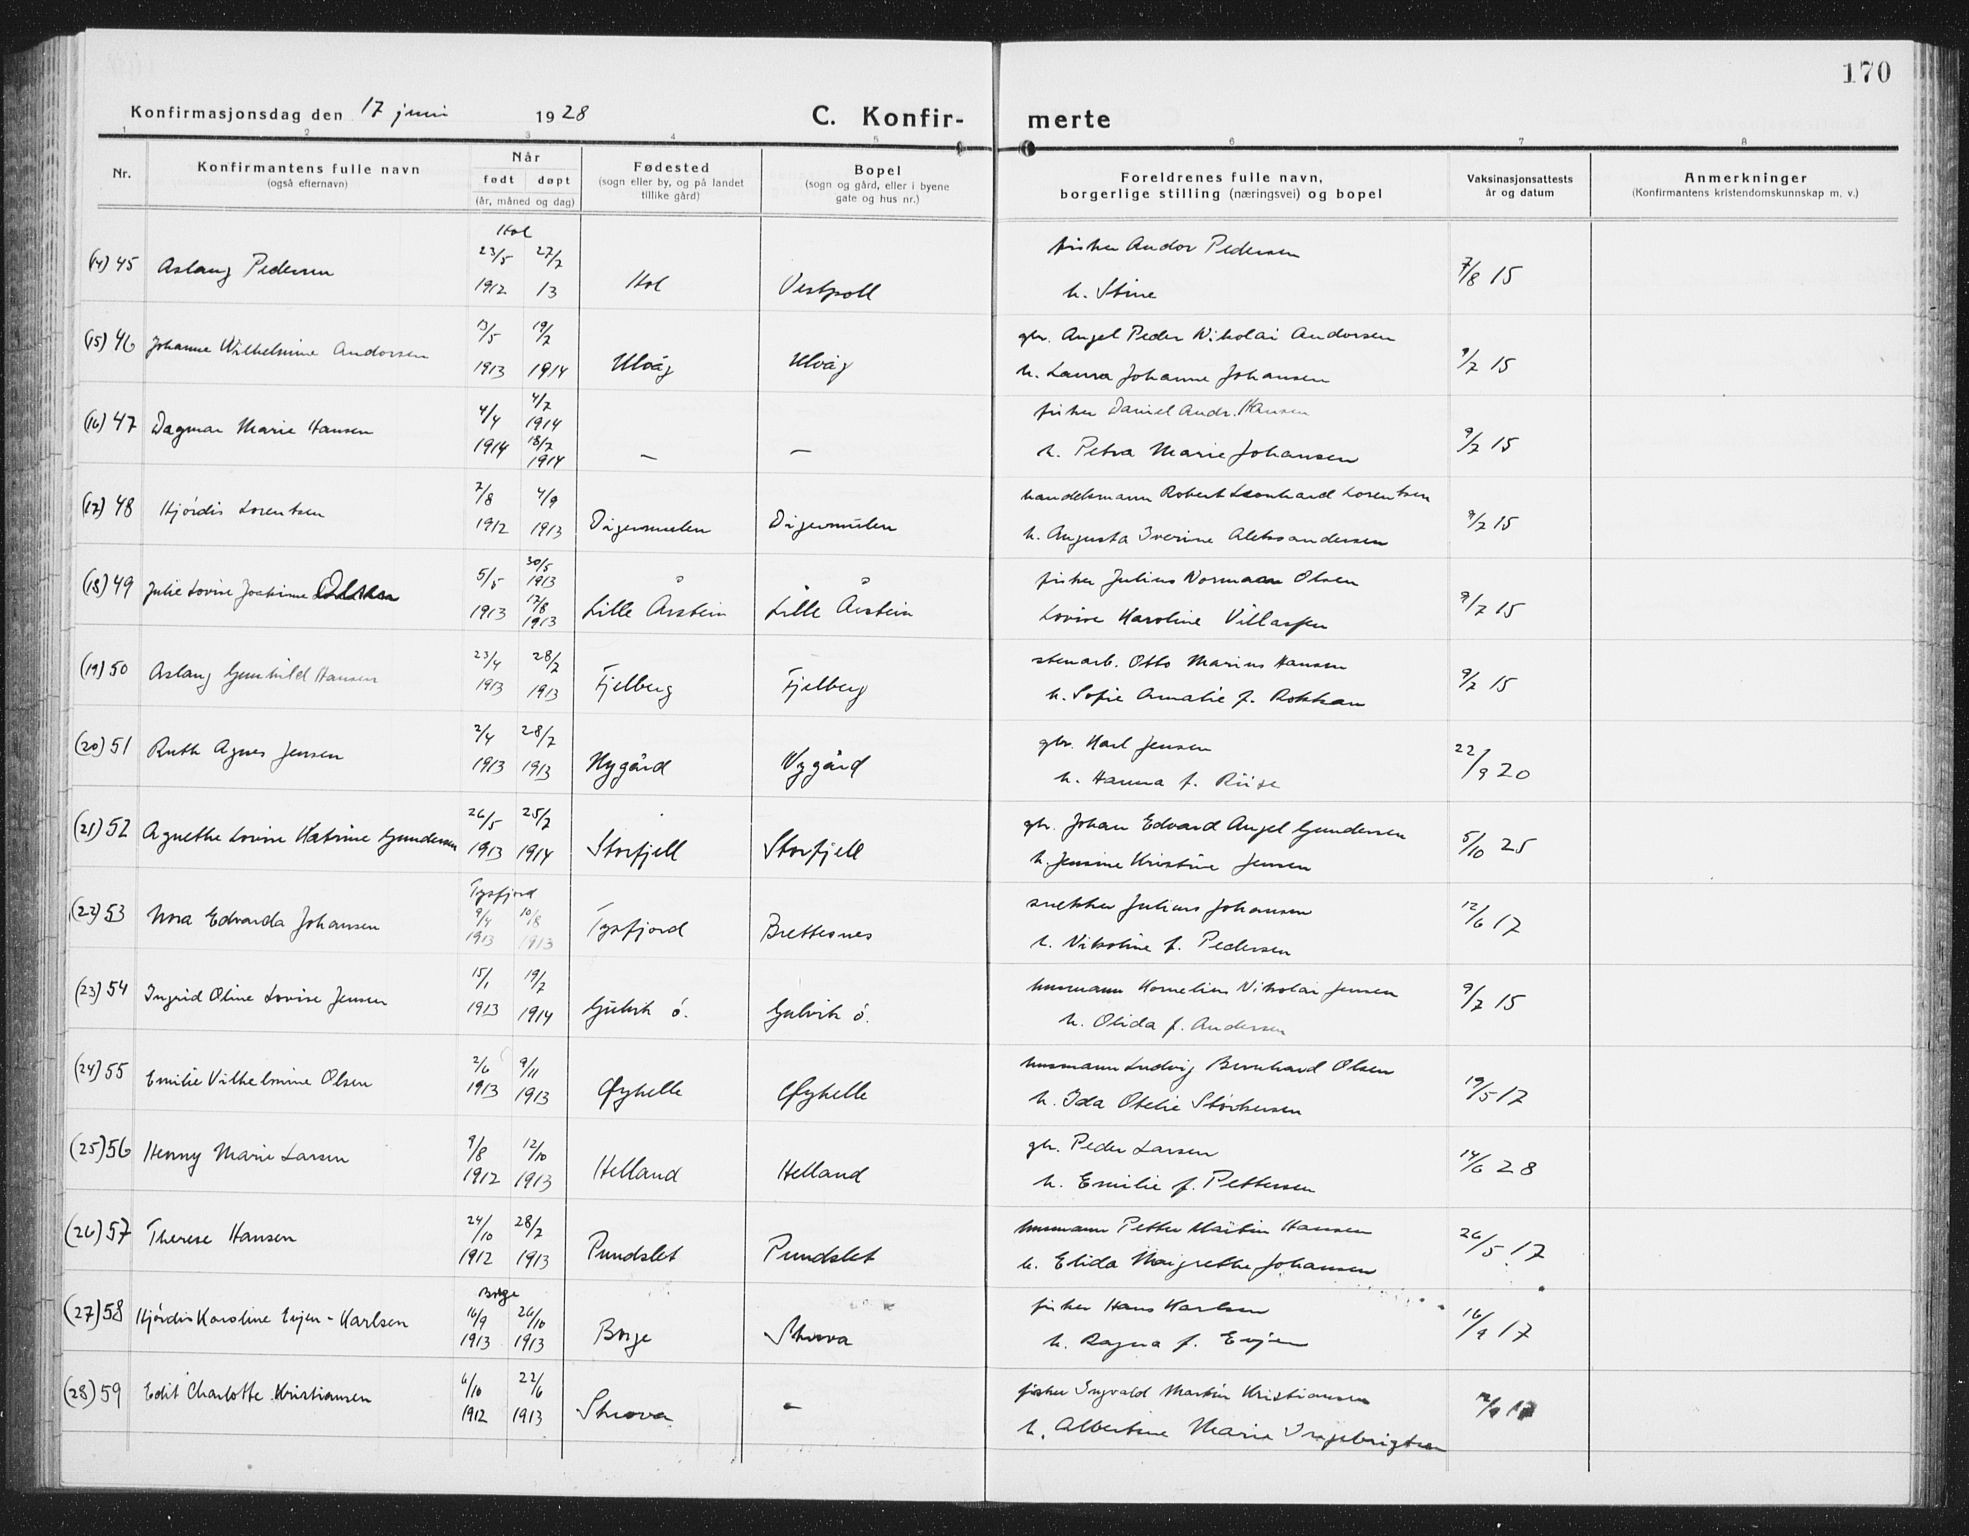 170
Konfirmasjonsdag den 17 juni 1928 C. Konfir- merte
1 2 3 4 5 6 7 8
Nr. Konfirmantens fulle navn (også efternavn) Når født døpt (år, måned og dag) Fødested (sogn eller by, og på landet tillike gård) Bopel (sogn og gård, eller i byene gate og hus nr.) Foreldrenes fulle navn, borgerlige stilling (næringsvei) og bopel Vaksinasjonsattests år og datum Anmerkninger (Konfirmantens kristendomskunnskap m. v.)
Hol
(14) 45 Aslaug Pedersen 23/5 1912 27/7 13 Hol Vestpoll fisker Andor Pedersen
h. Stine 7/8 15
(15) 46 Johanne Wilhelmine Andorsen 13/5 1913 19/7 1914 Ulvåg Ulvåg gbr. Angel Peder Nikolai Andorsen
h. Laura Johanne Johansen 9/7 15
(16) 47 Dagmar Marie Hansen 4/4 1914 4/7 1914 18/7 1914 — — fisker Daniel Andr. Hansen
h. Petra Marie Johansen 9/7 15
(17) 48 Hjórdis Lorentsen 7/8 1912 4/9 1913 Digermulen Digermulen handelsmann Robert Leonhard Lorentsen
h. Augusta Iverine Aleksandersen 9/7 15
(18) 49 Julie Lovise Joakime Olsen 5/5 1913 30/5 1913 17/8 1913 Lille Årstein Lille Årstein fisker Julius Normann Olsen
Lovise Karoline Villassen 9/7 15
(19) 50 Aslaug Gunhild Hansen 23/4 1913 28/7 1913 Fjelberg Fjelberg stenarb. Otto Marius Hansen
h. Sofie Amalie f. Rokkan 9/7 15
(20) 51 Ruth Agnes Jensen 2/4 1913 28/7 1913 Nygård Nygård gbr. Karl Jensen
h. Hanna f. Riise 22/9 20
(21) 52 Agnethe Lovise Katrine Gundersen 26/5 1913 25/7 1914 Storfjell Storfjell gbr. Johan Edvard Angel Gundersen
h. Jensine Kristine Jensen 5/10 25
Tysfjord
(22) 53 Nora Edvarda Johansen 9/4 1913 10/8 1913 Tysfjord Brettesnes snekker Julius Johansen
h. Nikoline f. Pedersen 12/6 17
(23) 54 Ingrid Oline Lovise Jensen 15/1 1913 19/7 1914 Gulvik ó. Gulvik ó. husmann Kornelius Nikolai Jensen
h. Olida f. Andersen 9/7 15
(24) 55 Emilie Vilhelmine Olsen 2/6 1913 9/11 1913 Øyhelle Øyhelle husmann Ludvig Bernhard Olsen
h. Ida Otelie Storkersen 19/5 17
(25) 56 Henny Marie Larsen 9/8 1912 12/10 1913 Helland Helland gbr. Peder Larsen
h. Emilie f. Pettersen 14/6 28
(26) 57 Therese Hansen 24/10 1912 28/7 1913 Pundslet Pundslet husmann Petter Martin Hansen
h. Elida Margrethe Johansen 26/5 17
Borge
(27) 58 Hjórdis Karoline Evjen-Karlsen 16/9 1913 26/10 1913 Borge Skrova fisker Hans Karlsen
h. Ragna f. Evjen 16/9 17
(28) 59 Edit Charlotte Kristiansen 6/10 1912 22/6 1913 Skrova — fisker Ingvald Martin Kristiansen
h. Albertine Marie Ingebrigtsen 17